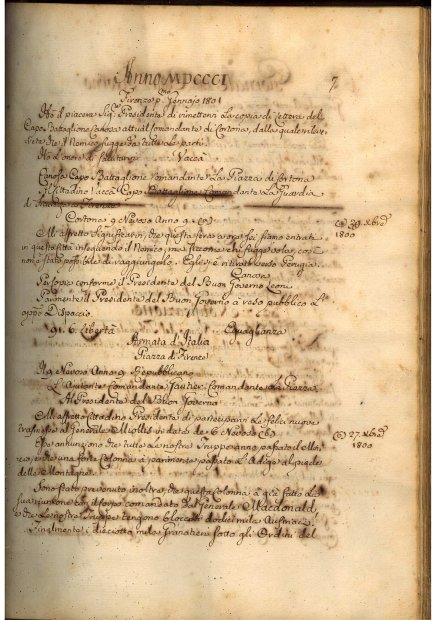 Anno MDCCCI
7
Firenze p.mo Gennajo 1801
Ho il piacere Sig. Presidente di rimettervi La copia di Lettera del
Capo Battaglione Canosa attual Comandante di Cortona, dalla quale
che il Nemico fugge da tutte le parti.
Ho L'onore di Salutarvi Vacca
Canosa Capo Battaglione Comandante La Piazza di Cortona
Al Cittadino Vacca Capo Battaglione Comandante La Guardia
di Firenze
Cortona 9 Nevoso Anno 9
30 Xbre
1800
M'affretto Significarvi, che questa sera a ore Sei siamo entrati
in questa Città inseguendo il Nemico, ma siccome chi fugge vola, così
non è stato possibile di raggiungelo. Egli si è ritirato verso Perugia.
Canosa
Per copia conforme il Presidente del Buon Governo Leoni
Parimente il Presidente del Buon Governo à reso pubblico L'
appo Dispaccio
91. 6. Libertà Eguaglianza
Armata d'Italia
Piazza di Firenze
Il 9 Nevoso Anno 9 Repubblicano
L'Ajutante Comandante Gautier Comandante La Piazza
Al Presidente del Buon Governo
M'affretto Cittadino Presidente di parteciparvi Le felici nuove
trasmesse al Generale Miollis in data de 6 Nevoso
27 Xbre
1800
Esse annunziono che tutte Le nostre Truppe anno passato il Min-
cio, e che una forte Colonna à parimente passato L'Adige al piede
delle Montagne.
Sono stato prevenuto inoltre, che questa Colonna à già fatto La
sua riunione col Corpo comandato dal Generale Macdonald,
e che Le nostre Truppe tengono bloccati dodici mila Austriaci.
Finalmente i dieciotto mila Granatieri sotto gli Ordini del